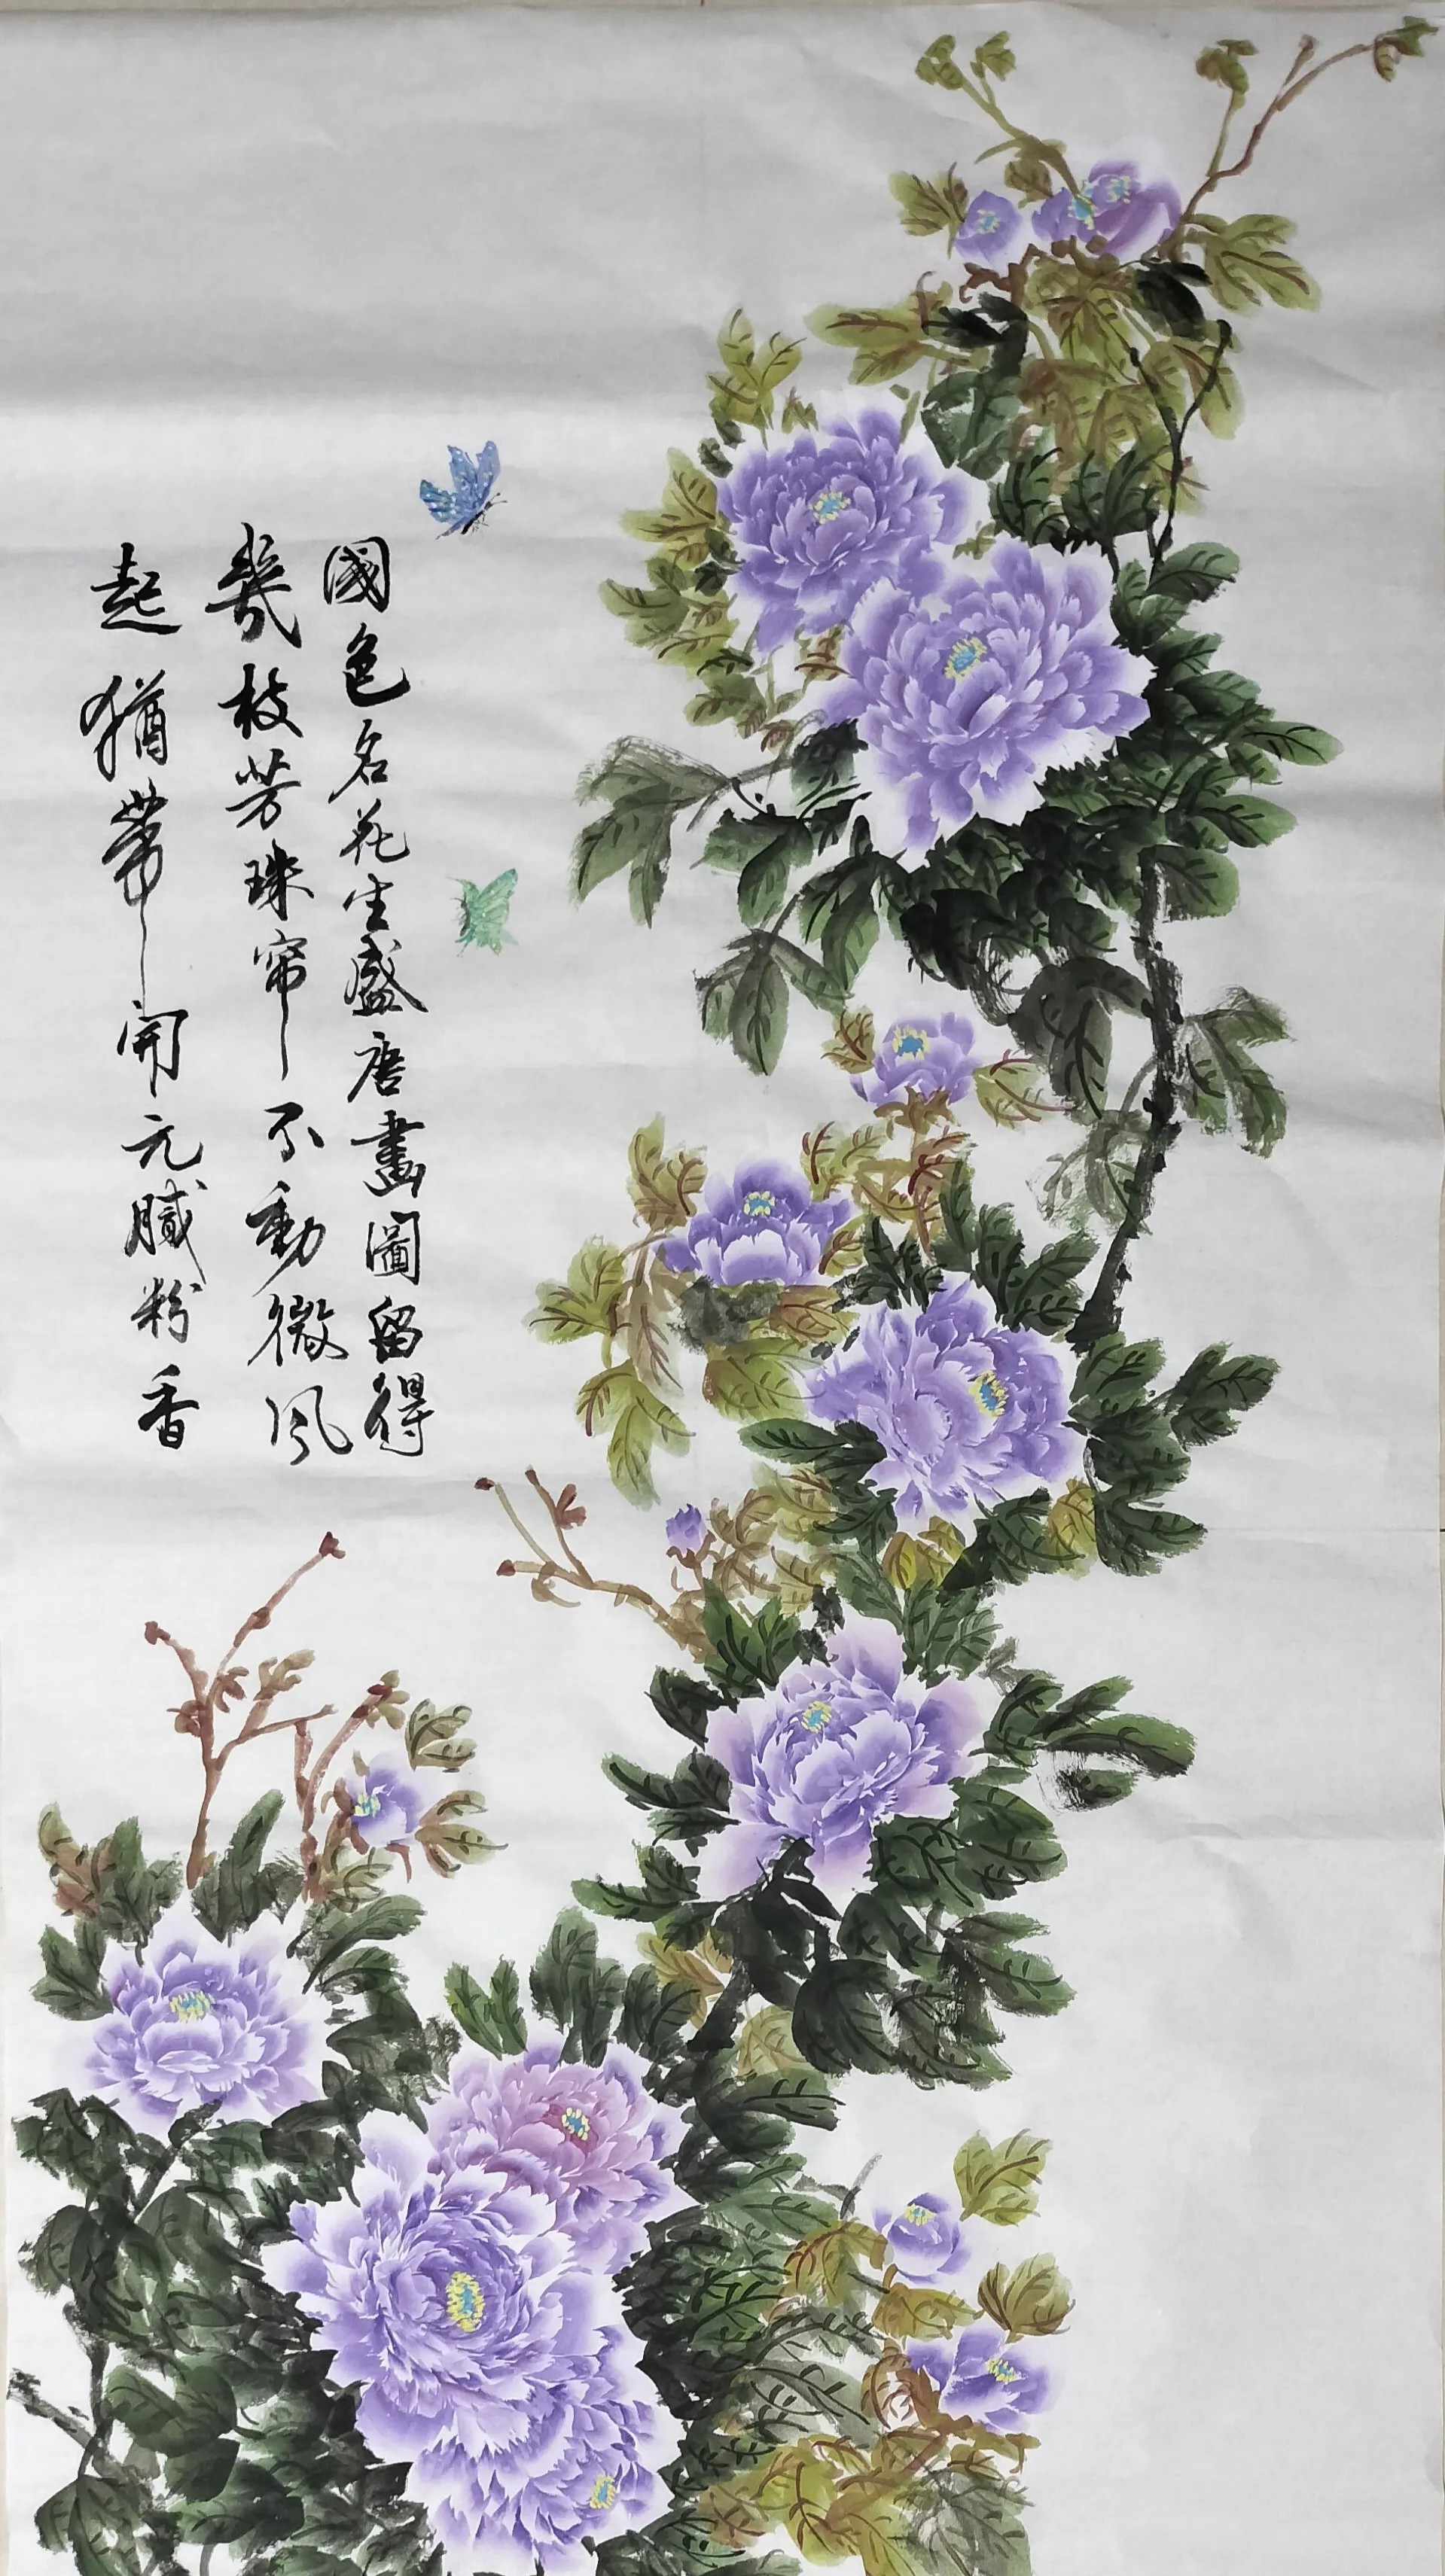 國色名花生盛唐畫圖留得
幾枝芳珠帘不動微風
起猶帶開元膩粉香